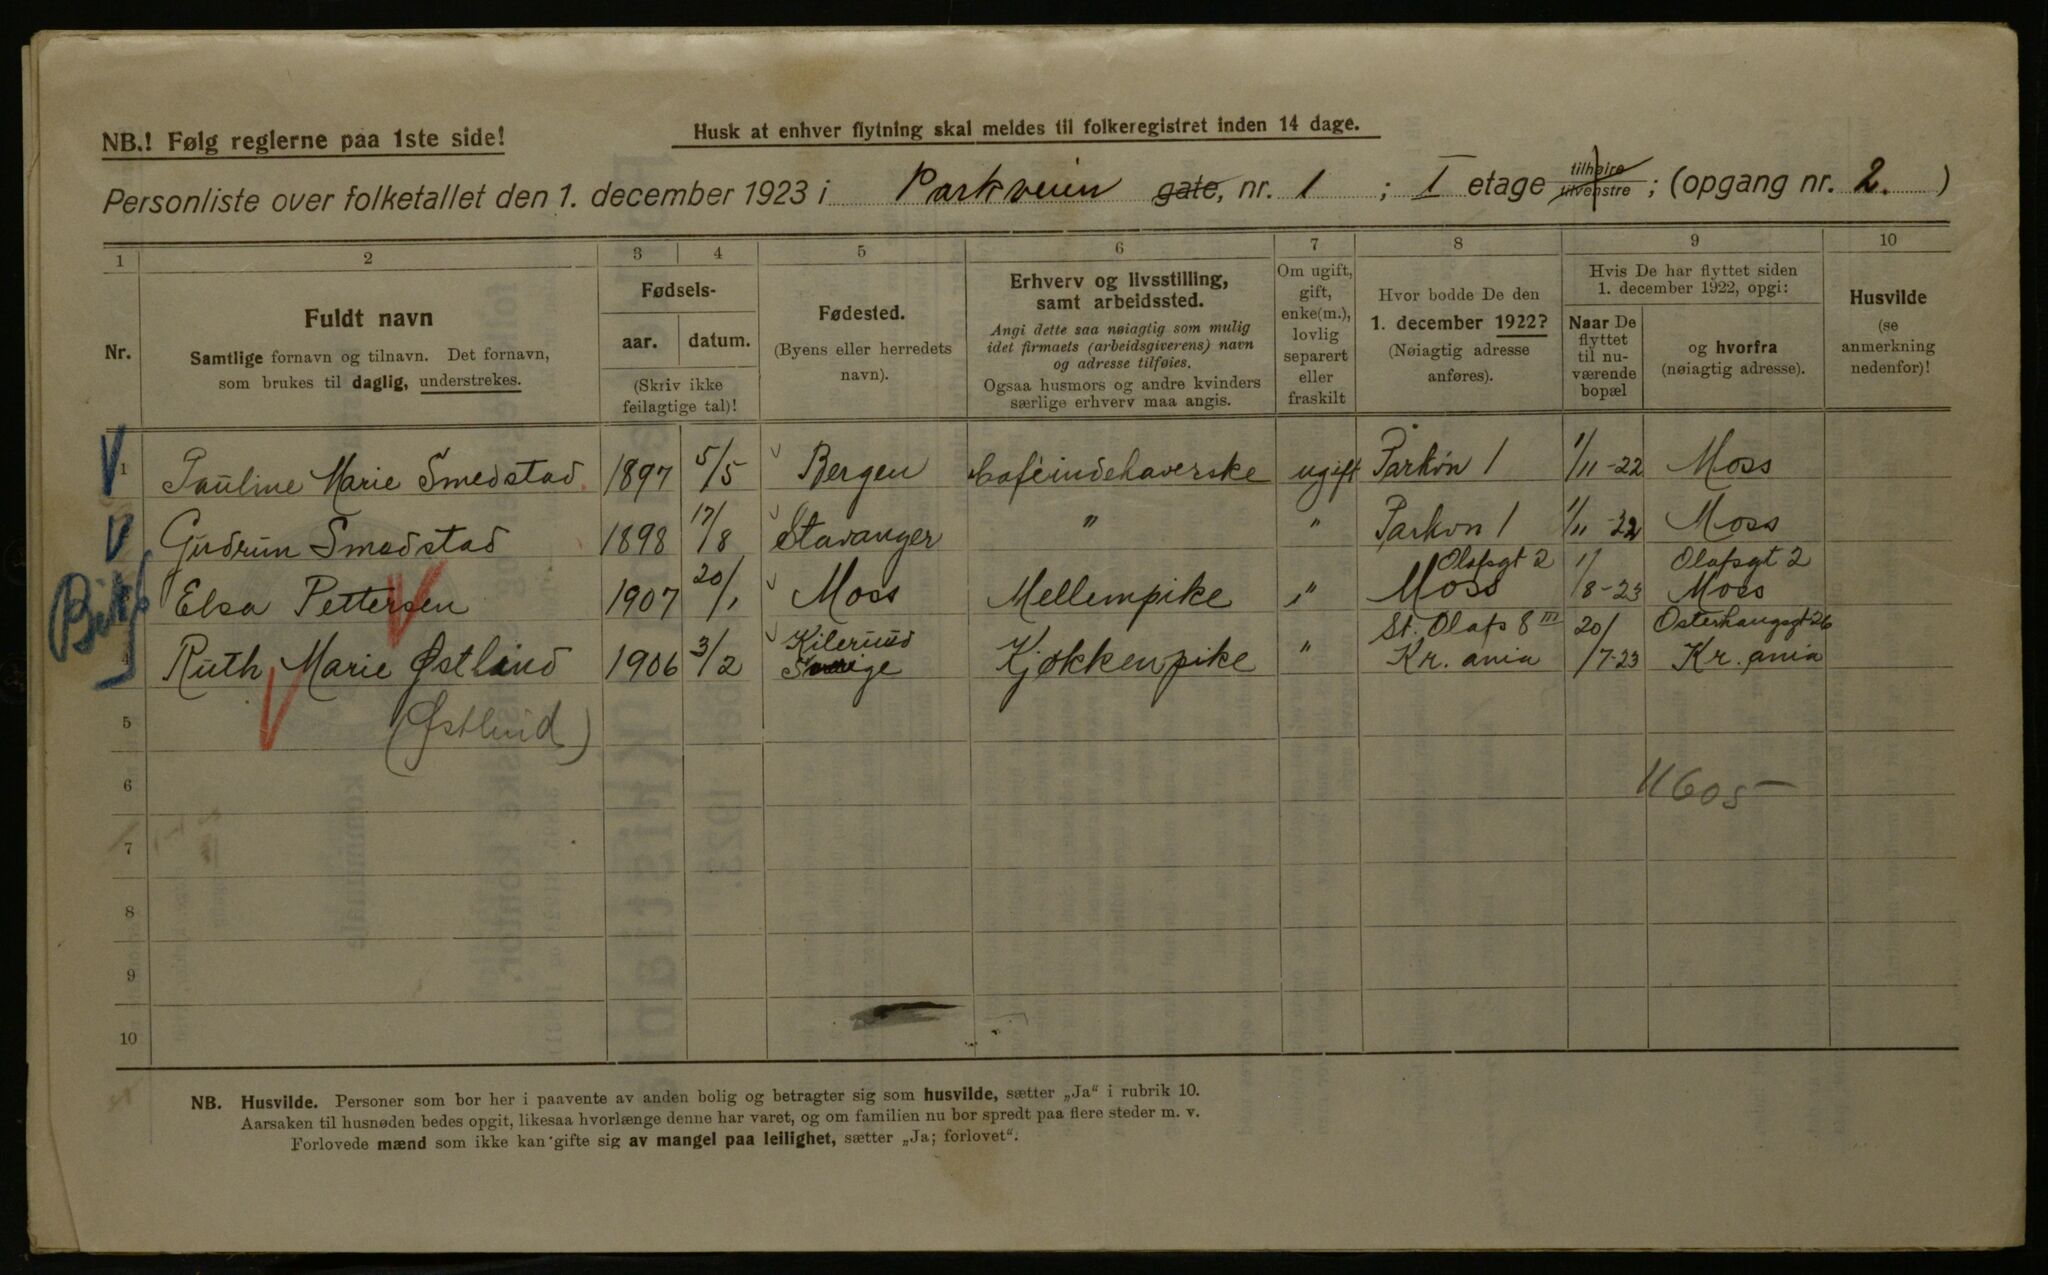 NB.! Følg reglerne paa 1ste side!
Husk at enhver flytning skal meldes til folkeregistret inden 14 dage.
Personliste over folketallet den 1. december 1923 i Parkveien gate, nr. 1 ; I etage tilhøire tilvenstre ; (opgang nr. 2. )
1 2 3 4 5 6 7 8 9 10
Nr.
Fuldt navn
Samtlige fornavn og tilnavn. Det fornavn,
som brukes til daglig, understrekes.
Fødsels-
aar. datum.
(Skriv ikke
feilagtige tal)!
Fødested.
(Byens eller herredets
navn).
Erhverv og livsstilling,
samt arbeidssted.
Angi dette saa nøiagtig som mulig
idet firmaets (arbeidsgiverens) navn
og adresse tilføies.
Ogsaa husmors og andre kvinders
særlige erhverv maa angis.
Om ugift,
gift,
enke(m.),
lovlig
separert
eller
fraskilt
Hvor bodde De den
1. december 1922?
(Nøiagtig adresse
anføres).
Hvis De har flyttet siden
1. december 1922, opgi:
Naar De
flyttet
til nu-
værende
bopæl
og hvorfra
(nøiagtig adresse).
Husvilde
(se
anmerkning
nedenfor)!
1 Pauline Marie Smedstad 1897 5/5 Bergen Caféindehaverske ugift Parkvn 1 1/11-22 Moss
Gudrun Smedstad 1898 17/8 Stavanger " " Parkvn 1 1/11-22 Moss
Elsa Pettersen 1907 20/1 Moss Mellempike " Olafsgt 2 Moss 1/8-23 Olafsgt 2 Moss
4 Ruth Marie Østlund 1906 3/2 Sverige Kjøkkenpike " St. Olafs 8 III Kr. ania 20/7-23 Osterhausgt 26 Kr. ania
5 (Østlund)
6 11605-
7
8
9
10
NB. Husvilde. Personer som bor her i paavente av anden bolig og betragter sig som husvilde, sætter „Ja" i rubrik 10.
Aarsaken til husnøden bedes opgit, likesaa hvorlænge denne har varet, og om familien nu bor spredt paa flere steder m. v.
Forlovede mænd som ikke kan gifte sig av mangel paa leilighet, sætter „Ja; forlovet".